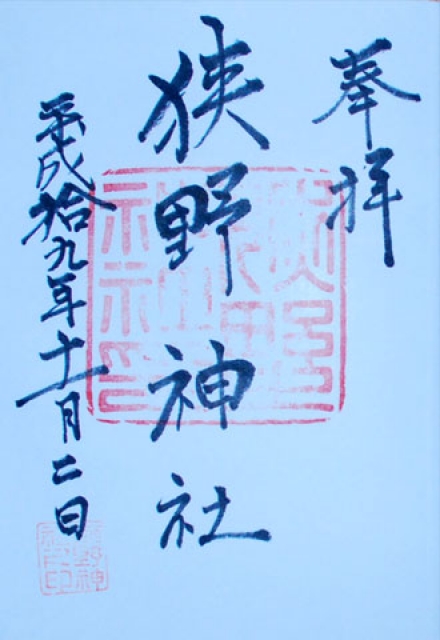 奉拝
狭野神社
平成拾九年十一月二日